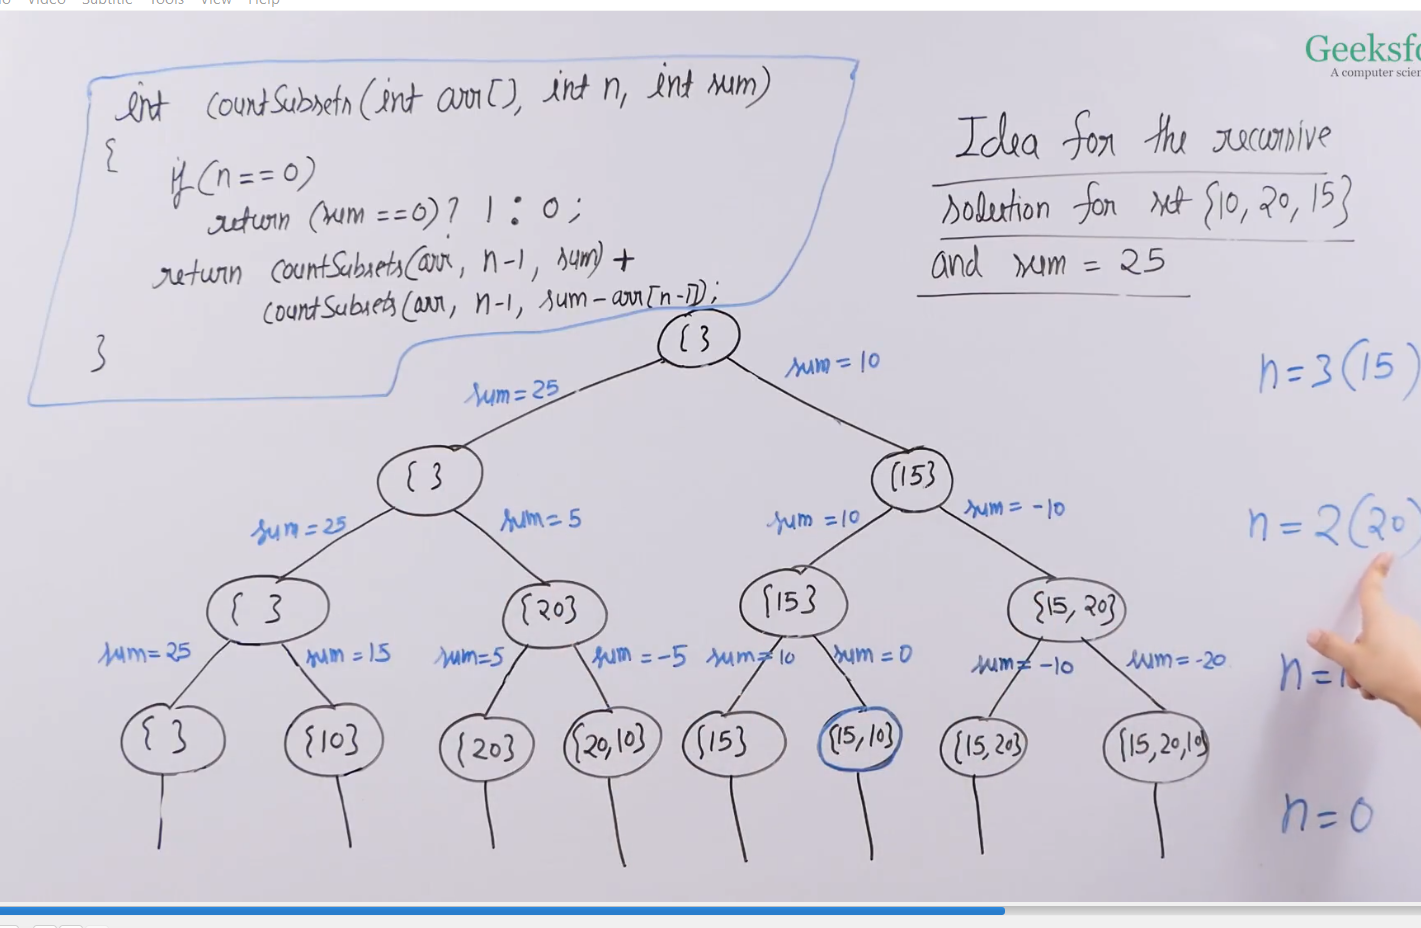 Video Subtitle Tools View Help
Geeksf
A computer scien
int countSubsets(int arr[], int n, int sum)
{
if(n==0)
return (sum==0)? 1 : 0;
return countSubsets(arr, n-1, sum) +
countSubsets(arr, n-1, sum-arr[n-1]);
}
Idea for the recursive
solution for set {10, 20, 15}
and sum = 25
{ }
sum=25
sum=10
n=3(15)
{ }
{15}
sum=25
sum=5
sum=10
sum=-10
n=2(20)
{ }
{20}
{15}
{15,20}
sum=25
sum=15
sum=5
sum=-5
sum=10
sum=0
sum=-10
sum=-20
n=1
{ }
{10}
{20}
{20,10}
{15}
{15,10}
{15,20}
{15,20,10}
n=0